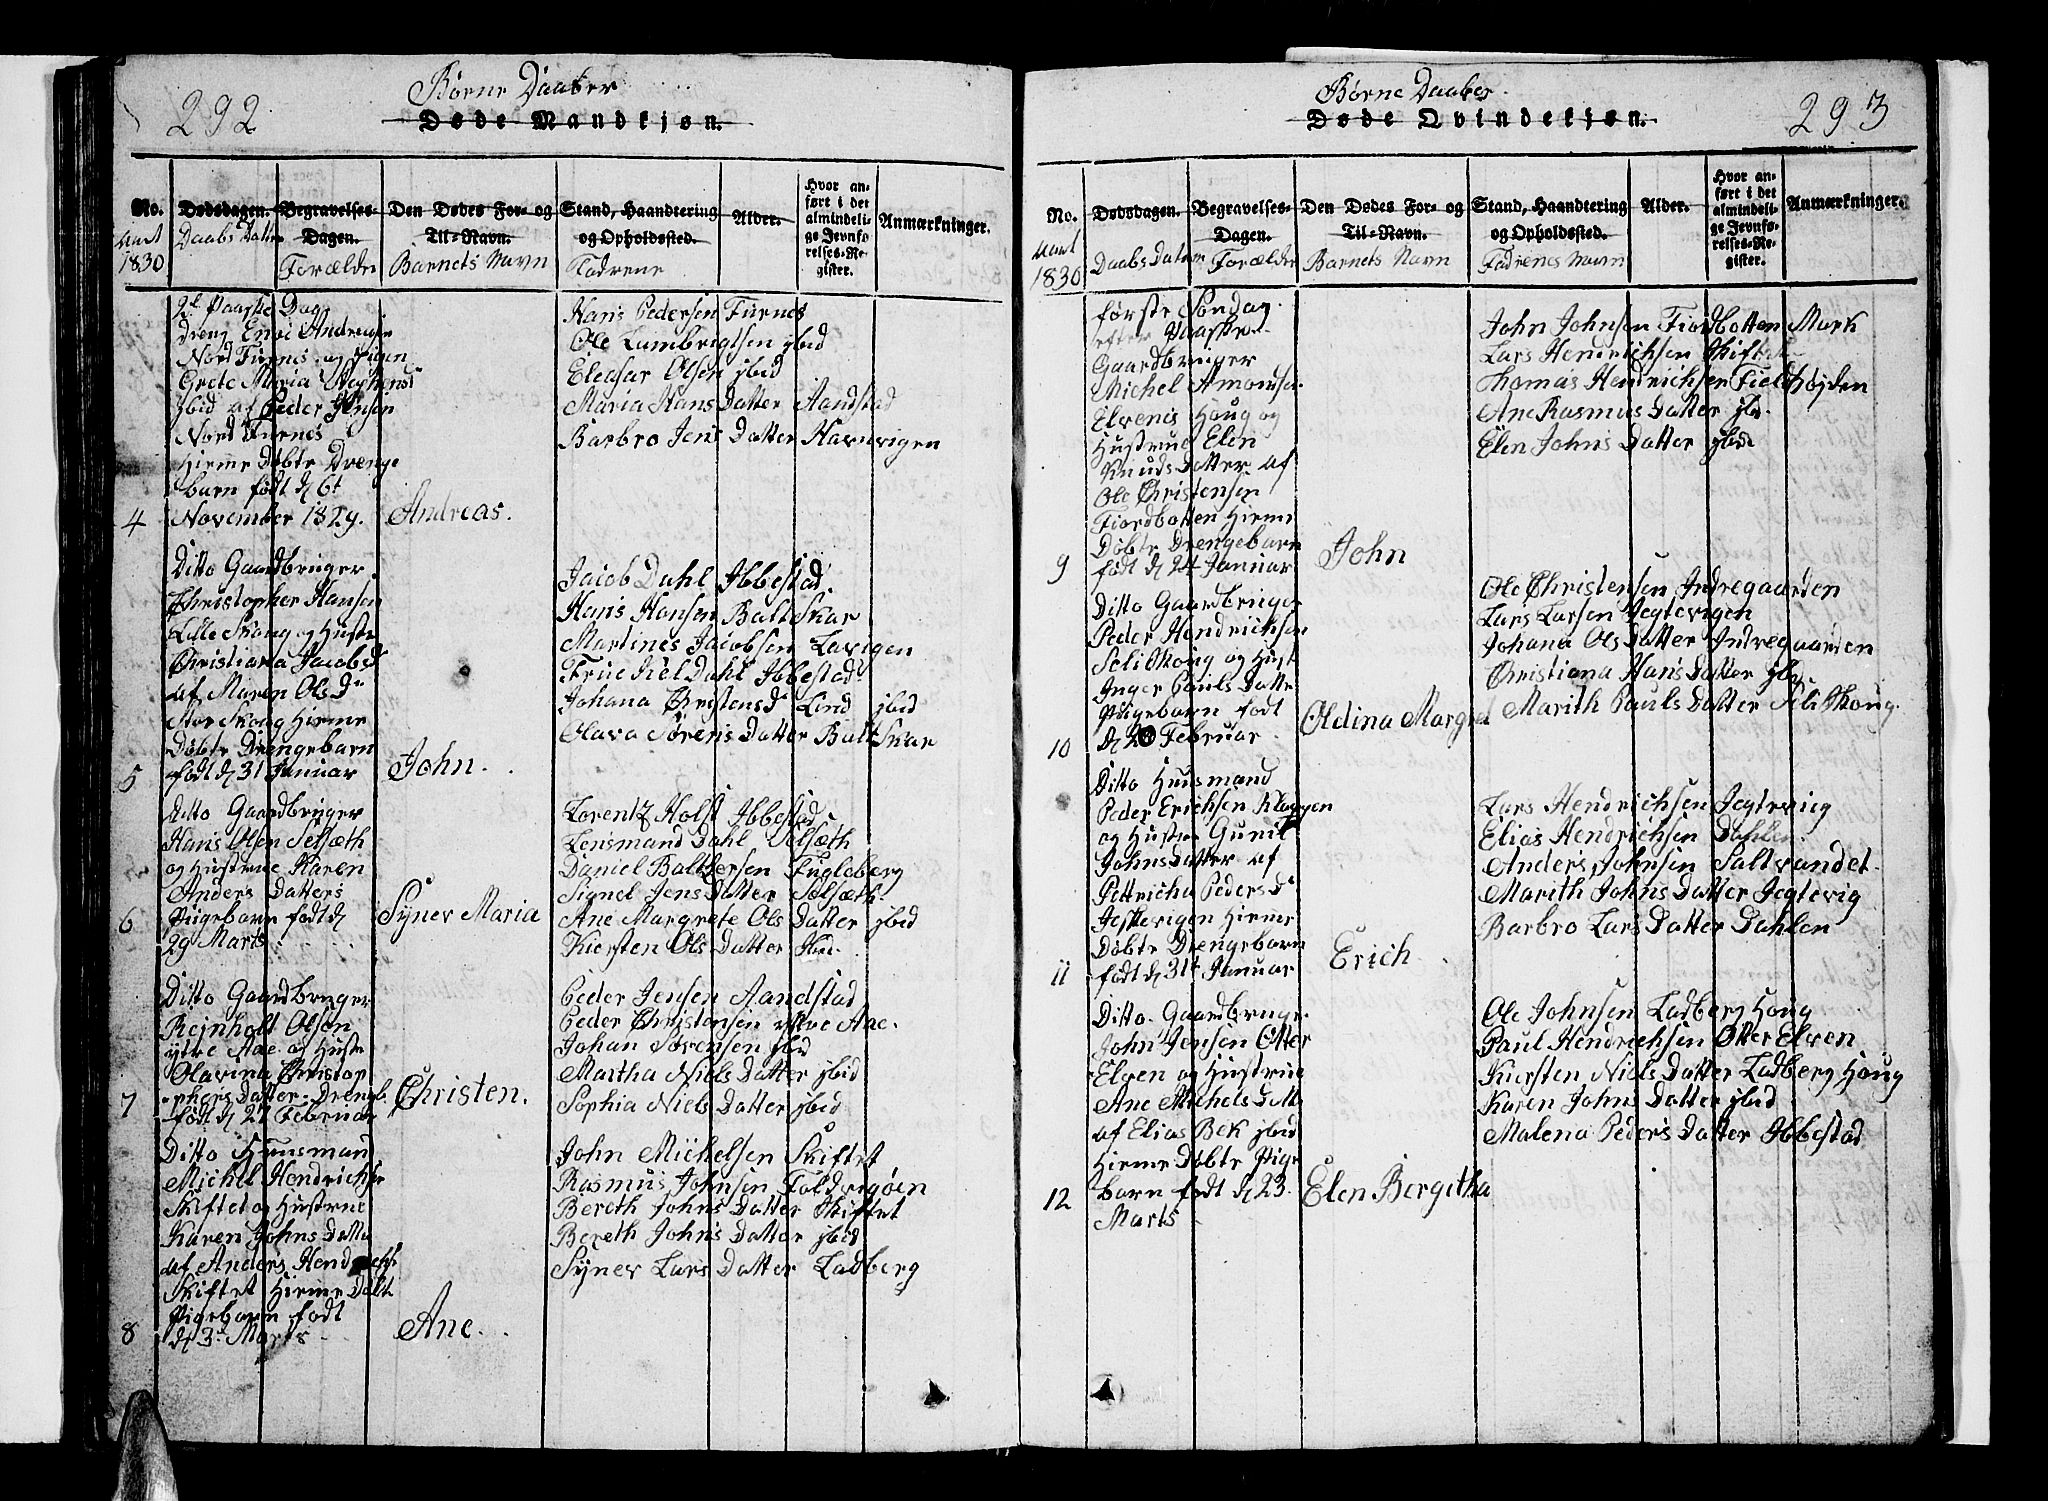 292
Børne Daaber
Døde Mandkjøn.
No.
Dødsdagen.
Begravelses-Dagen.
Den Dødes For- og Til-Navn.
Stand, Haandtering og Opholdssted.
Alder.
Hvor anført i det almindelige Jevnførelses-Register.
Anmærkninger.
Aaret 1830
Daabs Datter
Forældre
Barnets Navn
Fadrene
2d Paaske Dag
Nord Furnes og Pigen
Grete Maria
jbid af Peder Jensen
Nord Furnes
Hieme Døbte Drenge
barn født d 6t
4 November 1829. Andreas.
Hans Pedersen Furnes
Ole Lumbrigtsen jbid
Eleasar Olsen jbid
Maria Hans Datter Aandstad
Barbro Jens Datter Havnvigen
Ditto Gaardbruger
Christopher Hansen
Lille Skong og Hustr
Christiana Jacobsd
af Maren Ols Dr
Stor Skong Hieme
Døbte Drengebarn
5 født d 31 Januar John.
Jacob Dahl Ibbestad
Hans Hansen BaltSkar
Martines Jacobsen Lavigen
Frue Kiel Dahl Ibbestad
Johana Christensd Lind jbid
Olava Sørens Datter BaltSkar
Ditto Gaardbruger
Hans Olsen Selsæth
og Hustrue Karen
Anders Datters
6 Pigebarn født d Syner Maria
29 Marts
Lorentz Holst Ibbestad
Lensmand Dahl Selsæth
Daniel Balthersen Fugleberg
Signel Jens Datter Selsæth
Ane Margrete Ols Datter jbid
Kiersten Ols Datter jbid.
Ditto Gaardbruger
Rejnholt Olsen
ytre Aae og Hustr
Olavina Christop
phers Datter Drengeb.
7 født d 27 Februar Christen.
Peder Jensen Aandstad
Peder Christensen ytre Aae.
Johan Sørensen jbid
Martha Niels Datter jbid
Sophia Niels Datter jbid
Ditto Huusmand
Michel Hendrichsen
Skiftet og Hustrue
Karen Johns Datter
af Anders Hendrichs
Skiftet Hieme Døbt
Pigebarn født
8 d 3d Marts Ane.
John Michelsen Skiftet
Rasmus Johnsen Foldvigøen
Bereth Johns Datter Skiftet
Bereth Johns Datter jbid
Syner Lars Datter Ladberg
293
Børne Daaber
Døde Qvindekjøn.
No.
Dødsdagen.
Begravelses-Dagen.
Den Dødes For- og Til-Navn.
Stand, Haandtering og Opholdssted.
Alder.
Hvor anført i det almindelige Jevnførelses-Register.
Anmærkninger.
Aaret 1830
Daabs Datter
Forælder
Barnets Navn
Fadrenes Navn
første Søndag
efter Paaske
Gaardbruger
Michel Amonsen
Elvenes Houg og
Hustrue Elen
Knuds Datter af
Ole Christensen
Fiordbotten Hieme
Døbte Drengebarn
9 født d 24 Januar John
John Johnsen Fiordbotten Mark
Lars Hendrichsen Skiftet
Thomas Hendrichsen Fieldhøjden
Ane Rasmus Datter jbd.
Elen Johns Datter jbid
Ditto Gaardbruger
Peder Hendrichsen
SeliSkoug og Hust
Inger Pauls Datter
Pigebarn født
10 d 20 Februar Oldina Margret
Ole Christensen Indregaarden
Lars Larsen Jegtevigen
Johana Ols Datter Indregaarden
Christiana Hans Datter jbd.
Marith Pauls Datter SeliSkoug.
Ditto Huusmand
Peder Erichsen Kløppen
og Hustru Gunil
Johnsdatter af
Pettricha Peders Dr
Jegtevigen Hieme
Døbte Drengebarn
11 født d 31t Januar Erich
Lars Hendrichsen Jegtevig
Elias Hendrichsen Dahlen
Anders Johnsen Saltvandet
Marith Johns Datter Jegtevig
Barbro Lars Datter Dahlen
Ditto Gaardbruger
John Jensen Otter
Elven og Hustrue
Ane Michels Datt
af Elias Bek jbid
Hieme Døbte Pige
12 barn født d 23. Elen Bergitha
Marts
Ole Johnsen Ladberg Houg
Paul Hendrichsen Otter Elven
Kiersten Niels Datter Ladberg Houg
Karen Johns Datter jbid
Malena Peders Datter Ibbestad